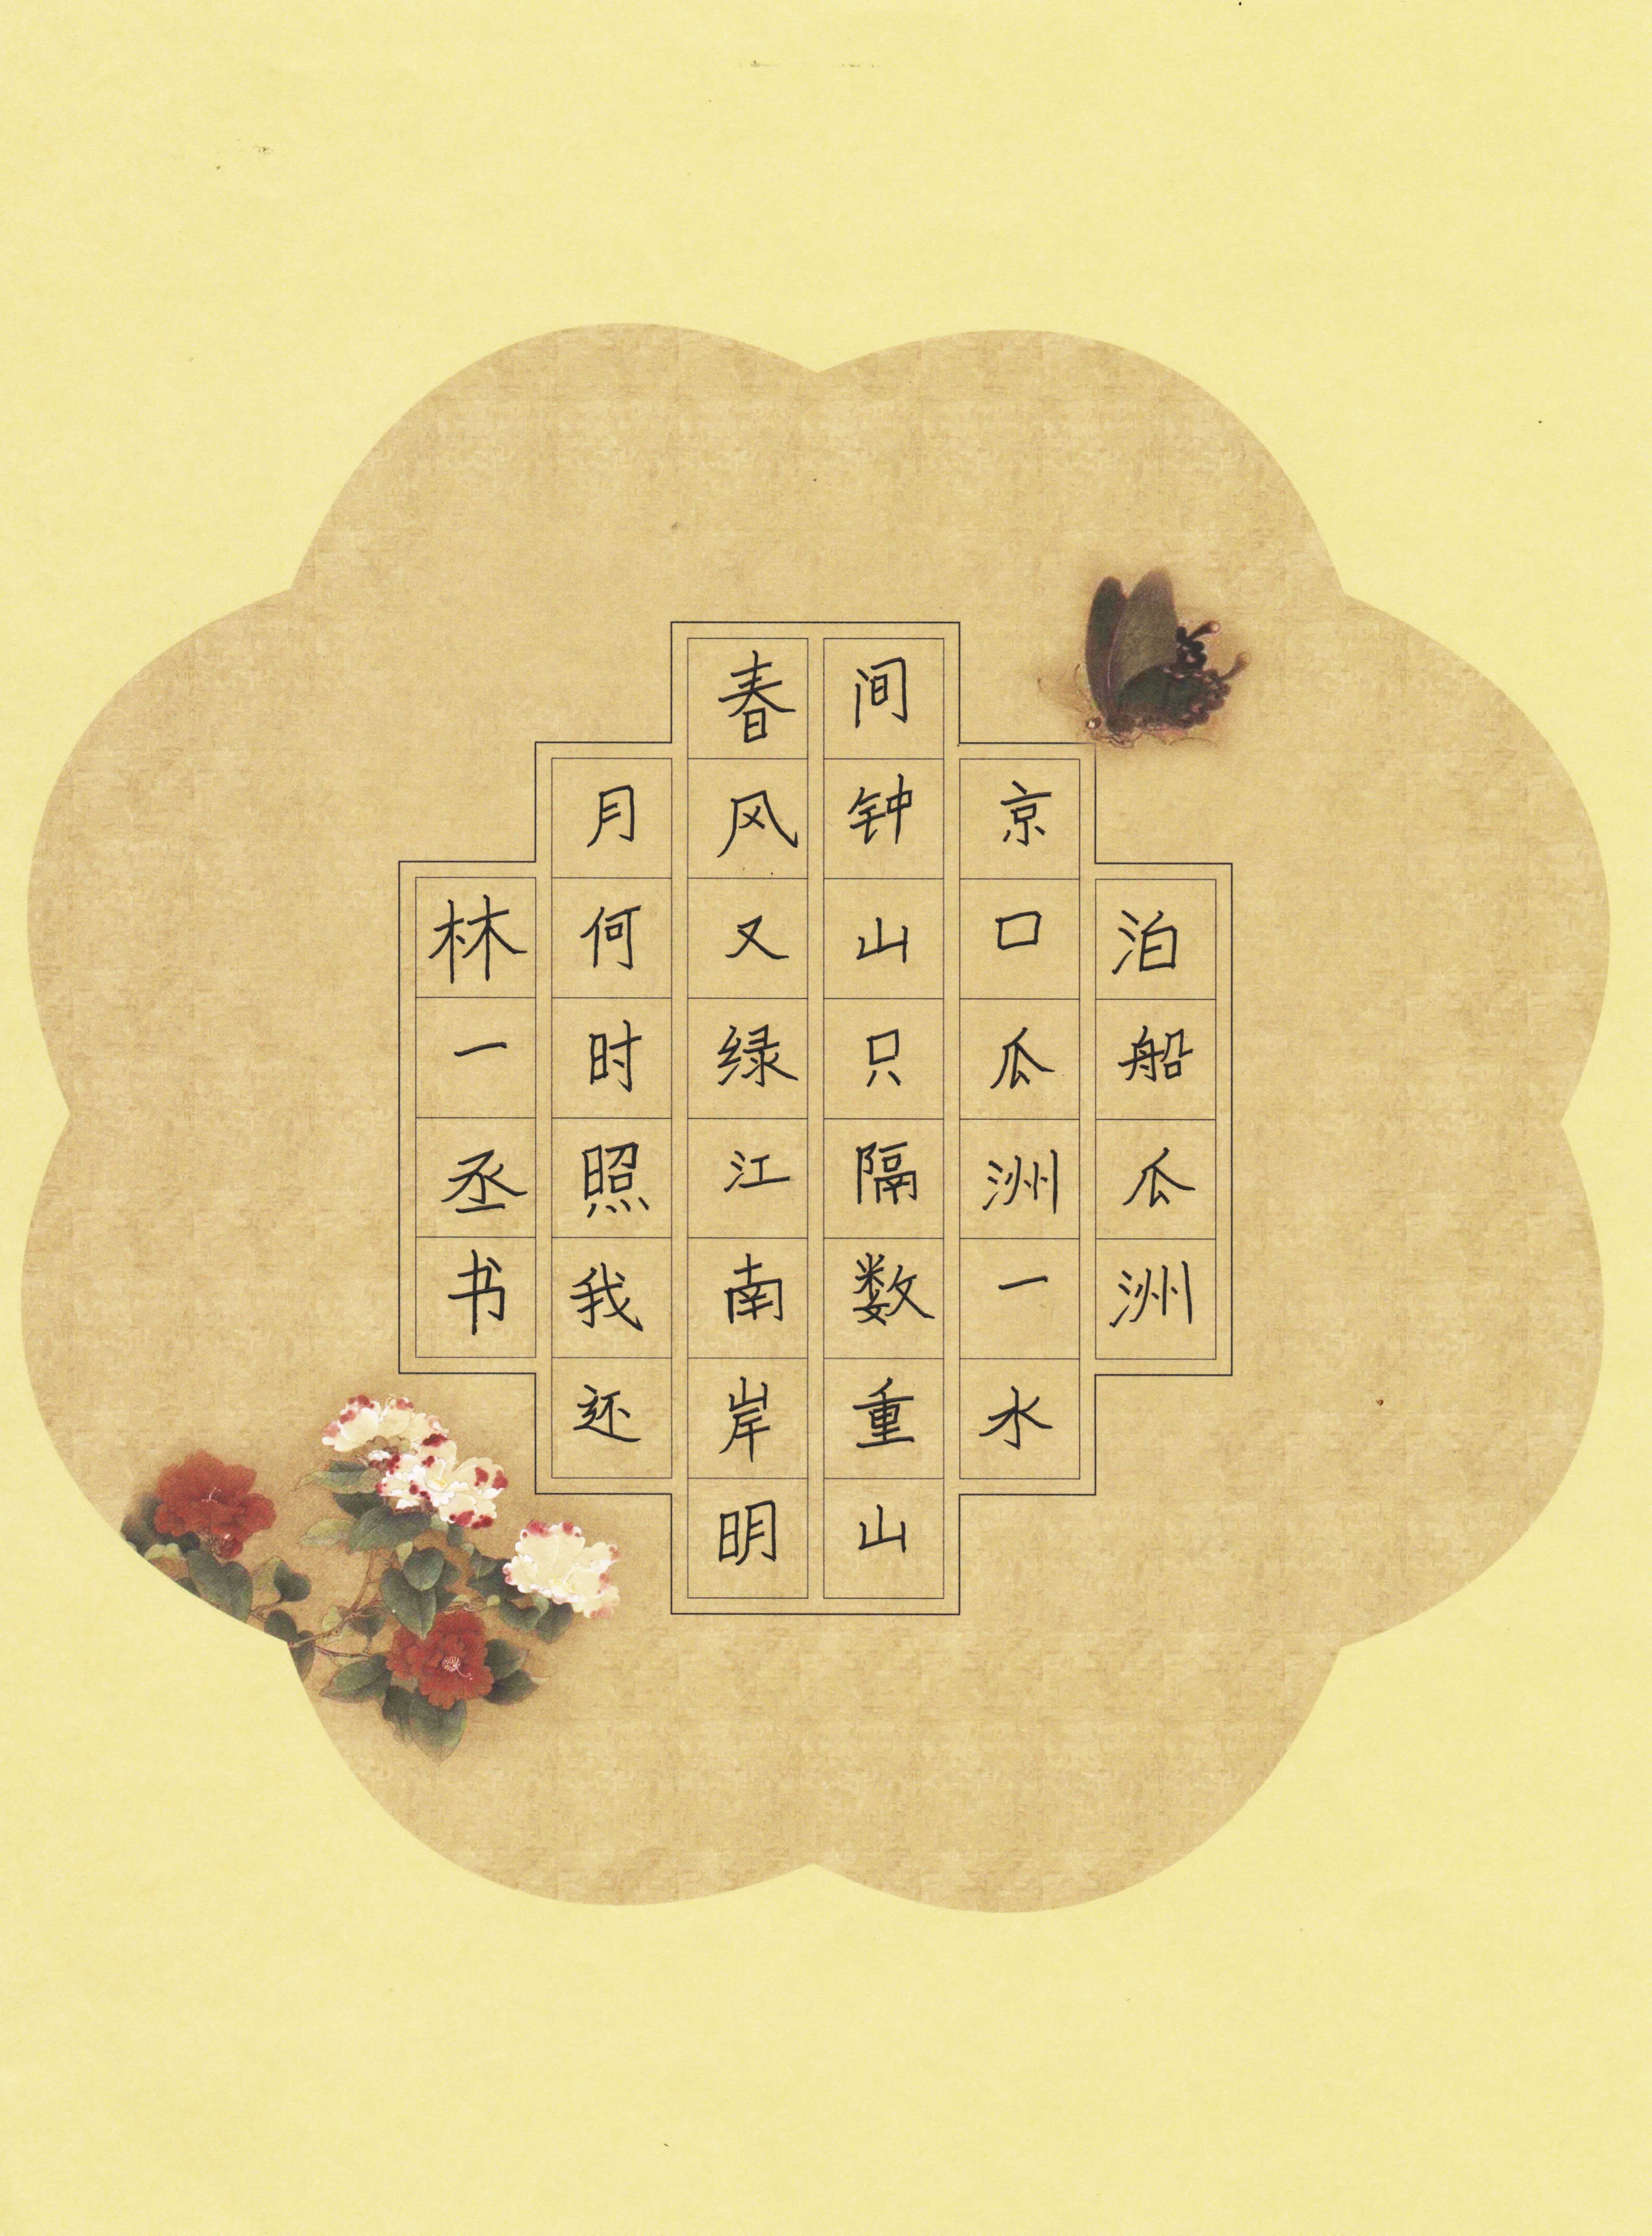 泊船瓜洲
京口瓜洲一水
间钟山只隔数重山
春风又绿江南岸明
月何时照我还
林一丞书